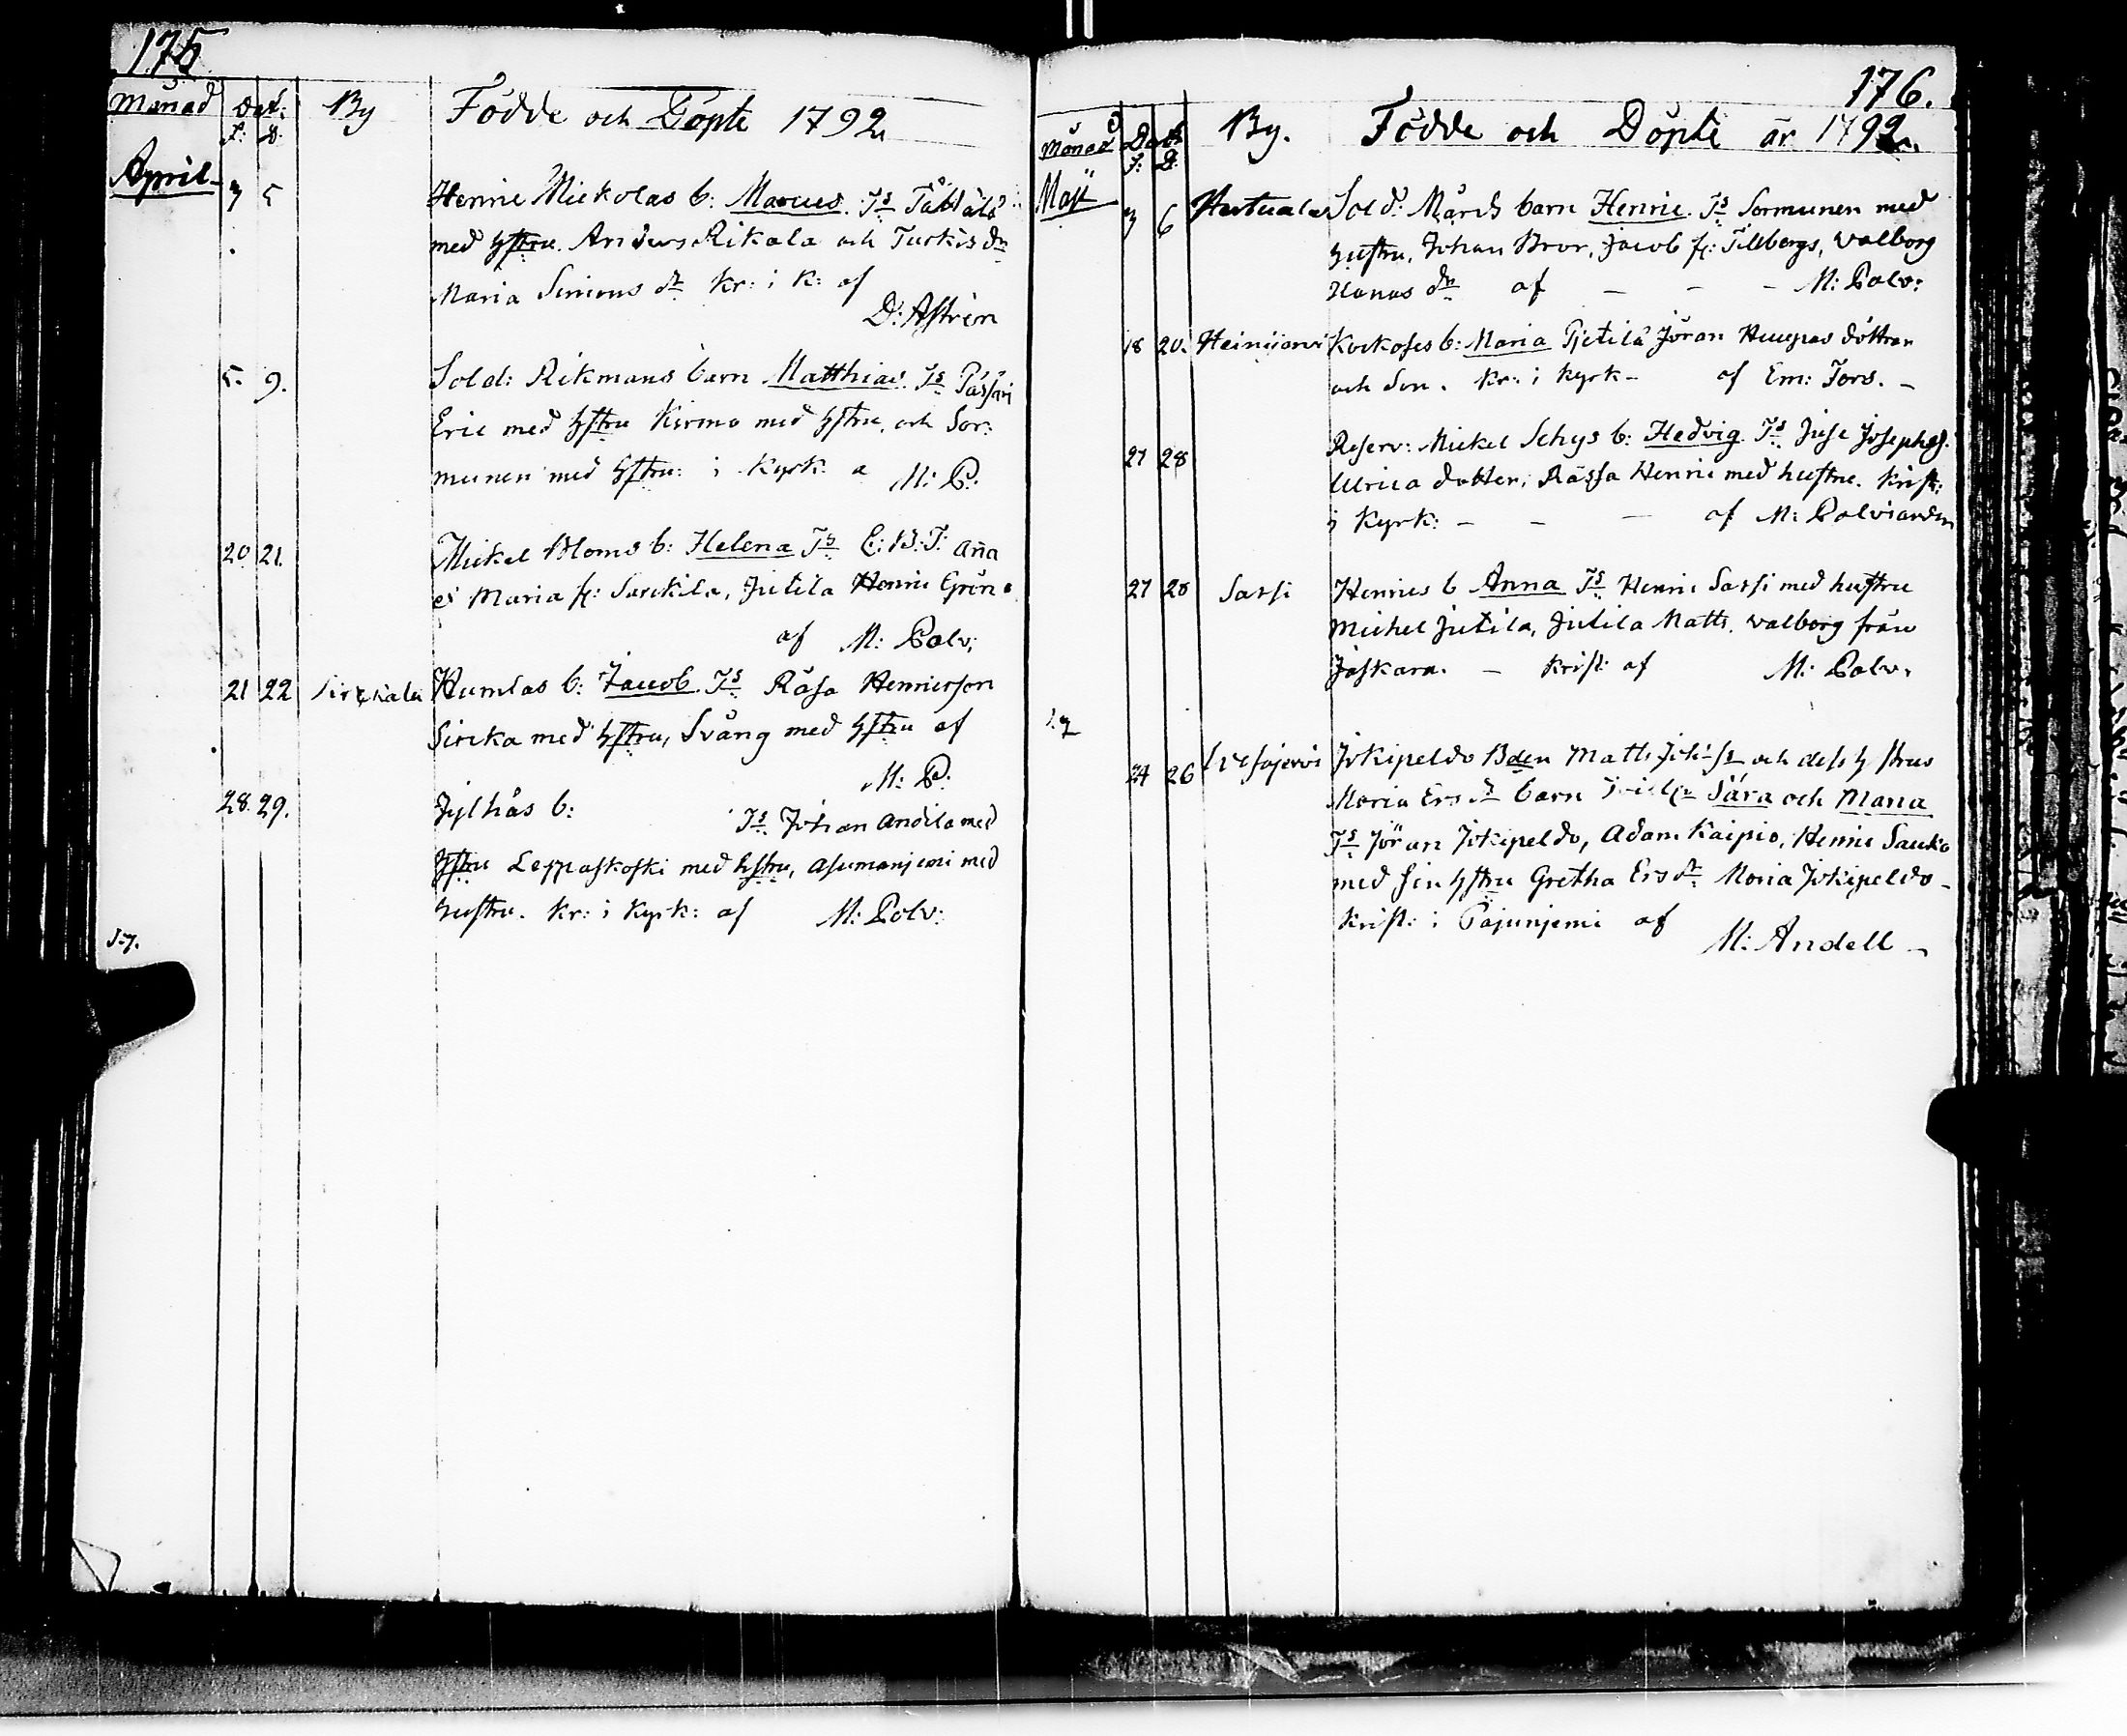 175
Månad Dat: By Födde och Döpte 1792
F: D:
April 3 5 Henric Mickolas b: Marcus. Ts
med hstru. Anders Rikala och Turkis dr
Maria Simons dr kr: i k: af
D: Astrén
5. 9. Sold: Rikmans barn Matthias. Ts Pässäri
Eric med hstru Kirmo med hstru, och Sor:
munen med hstru: i Kyrk: a M: P:
20 21. Mickel Bloms b: Helena Ts E: B: T: Aña
Maria fr: Sarckila, Jutila Henric Grön
af M: Polv:
21 22 Sirckala Humlas b: Jacob. Ts Räsa Henricsson
Sircka med hstru, Svång med hstru af
M: P:
28. 29. Jylhäs b: Ts Johan Andila med
hstru Leppaskoski med hstru, Asumanjemi med
hustru. kr: i kyrk: af M: Polv:
S. 7.
176.
Månad Dat: By. Födde och Döpte år 1792
F: D:
Maji 3 6 Hertuala Sold: Mårds barn Henric. Ts Sormunen med
hustru, Johan Bror, Jacob fr: Tillbergs, Valborg
Hanas dr af – – – M: Polv:
18 20. Heinijarvi Kockoses b: Maria Pjetilä Jöran Huupas dottren
och Son. kr: i kyrk – af Em: Fors. –
27 28 Reserv: Mickel Schys b: Hedvig Ts Juse Josephs.
Ulrica dotter, Rässa Henric med hustru. Krist:
i Kyrk: – – – af M: Polviander
27 28 Sassi Henrics b Anna Ts Henric Sassi med hustru
Michel Jutila, Jutila Matts. Valborg från
Jäskara. – Krist: af M: Polv:
S. 7
24 26 Jokipeldo Bden Matts och dess hstrus
Maria Ers dr barn Sara och Maria
Ts Jöran Jokipeldo, Adam Kaipio, Henric Sauko
med sin hstru Gretha Ers dr Maria Jokipeldo –
Krist: i Pajunjemi af
M: Andell –